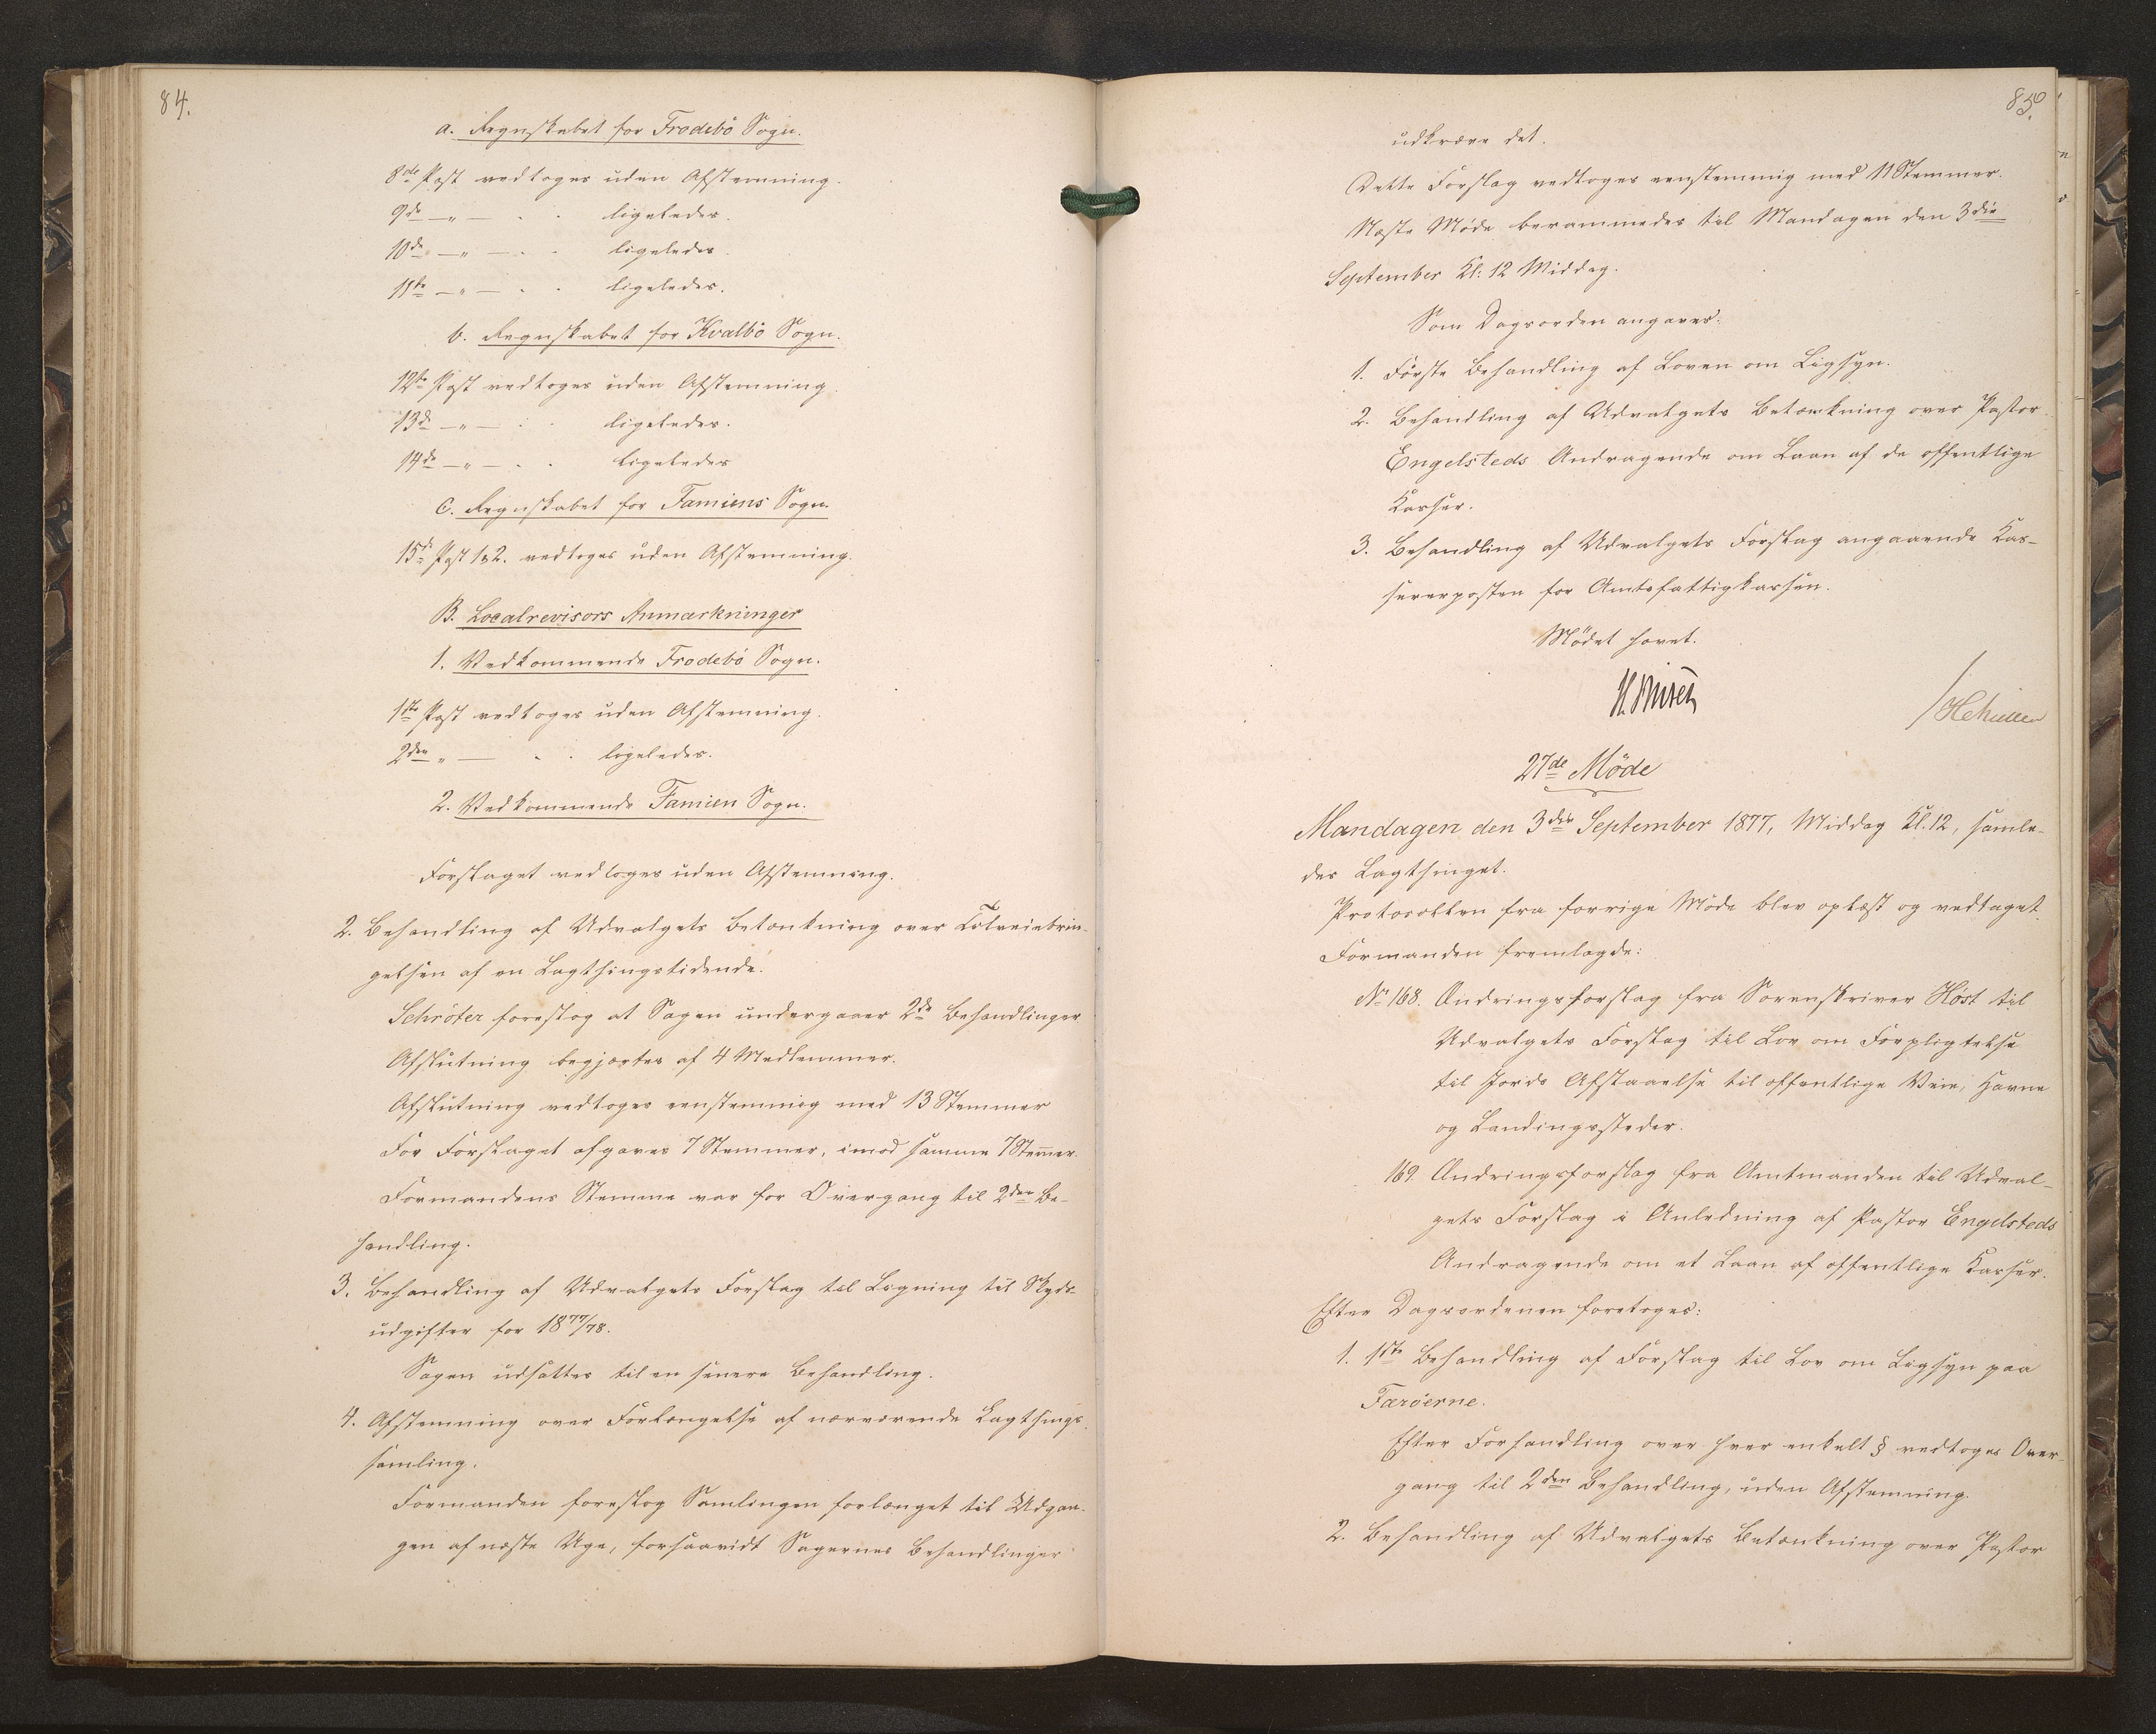 84.
a. Regnskabet for Frodebö Sogn.
8de Post vedtoges uden Afstemning.
9de —„— . . ligeledes.
10de —„— . . ligeledes.
11te —„— . . ligeledes.
b. Regnskabet for Kvalbö Sogn.
12te Post vedtoges uden Afstemning.
13de —„— . . ligeledes.
14de —„— . . ligeledes
C. Regnskabet for Famiens Sogn.
15de Post 1&2. vedtoges uden Afstemning.
B. Localrevisors Anmærkninger
1. Vedkommende Frodebö Sogn.
1ste Post vedtoges uden Afstemning.
2den „ — . . ligeledes.
2. Vedkommende Famien Sogn.
Forslaget vedtoges uden Afstemning.
2. Behandling af Udvalgets Betænkning over
gelsen af en Lagthingstidende.
Schröter foreslog at Sagen undergaaer 2de Behandlinger
Afslutning begjærtes af 4 Medlemmer.
Afslutning vedtoges eenstemmig med 13 Stemmer
For Forslaget afgaves 7 Stemmer, imod samme 7 Stemer.
Formandens Stemme var for Overgang til 2den Be-
handling.
3. Behandling af Udvalgets Forslag til Ligning til Skyds-
udgifter for 1877/78.
Sagen udsattes til en senere Behandling.
4. Afstemning over Forlængelse af nærværende Lagthings-
samling.
Formanden foreslog Samlingen forlænget til Udgan-
gen af næste Uge, forsaavidt Sagernes Behandlinger
85.
udkræve det.
Dette Forslag vedtoges eenstemmig med 11 Stemmer.
Næste Möde berammedes til Mandagen den 3die
September Kl: 12 Middag.
Som Dagsorden angaves:
1. Förste Behandling af Loven om Ligsyn.
2. Behandling af Udvalgets Betænkning over Pastor
Engelsteds Andragende om Laan af de offentlige
Kasser.
3. Behandling af Udvalgets Forslag angaaende Kas-
sererposten for Amtsfattigkassen.
Mödet hævet.
27de Möde
Mandagen den 3die September 1877, Middag Kl. 12, samle-
des Lagthinget.
Protocollen fra forrige Möde blev oplæst og vedtaget.
Formanden fremlagde:
No 168. Ændringsforslag fra Sorenskriver Höst til
Udvalgets Forslag til Lov om Forpligtelse
til Jords Afstaaelse til offentlige Veie, Havne
og Landingssteder.
169. Ændringsforslag fra Amtmanden til Udval-
gets Forslag i Anledning af Pastor Engelsteds
Andragende om et Laan af offentlige Kasser.
Efter Dagsordenen foretoges:
1. 1ste Behandling af Forslag til Lov om Ligsyn paa
Færöerne.
Efter Forhandling over hver enkelt § vedtoges Over-
gang til 2den Behandling, uden Afstemning.
2. Behandling af Udvalgets Betænkning over Pastor